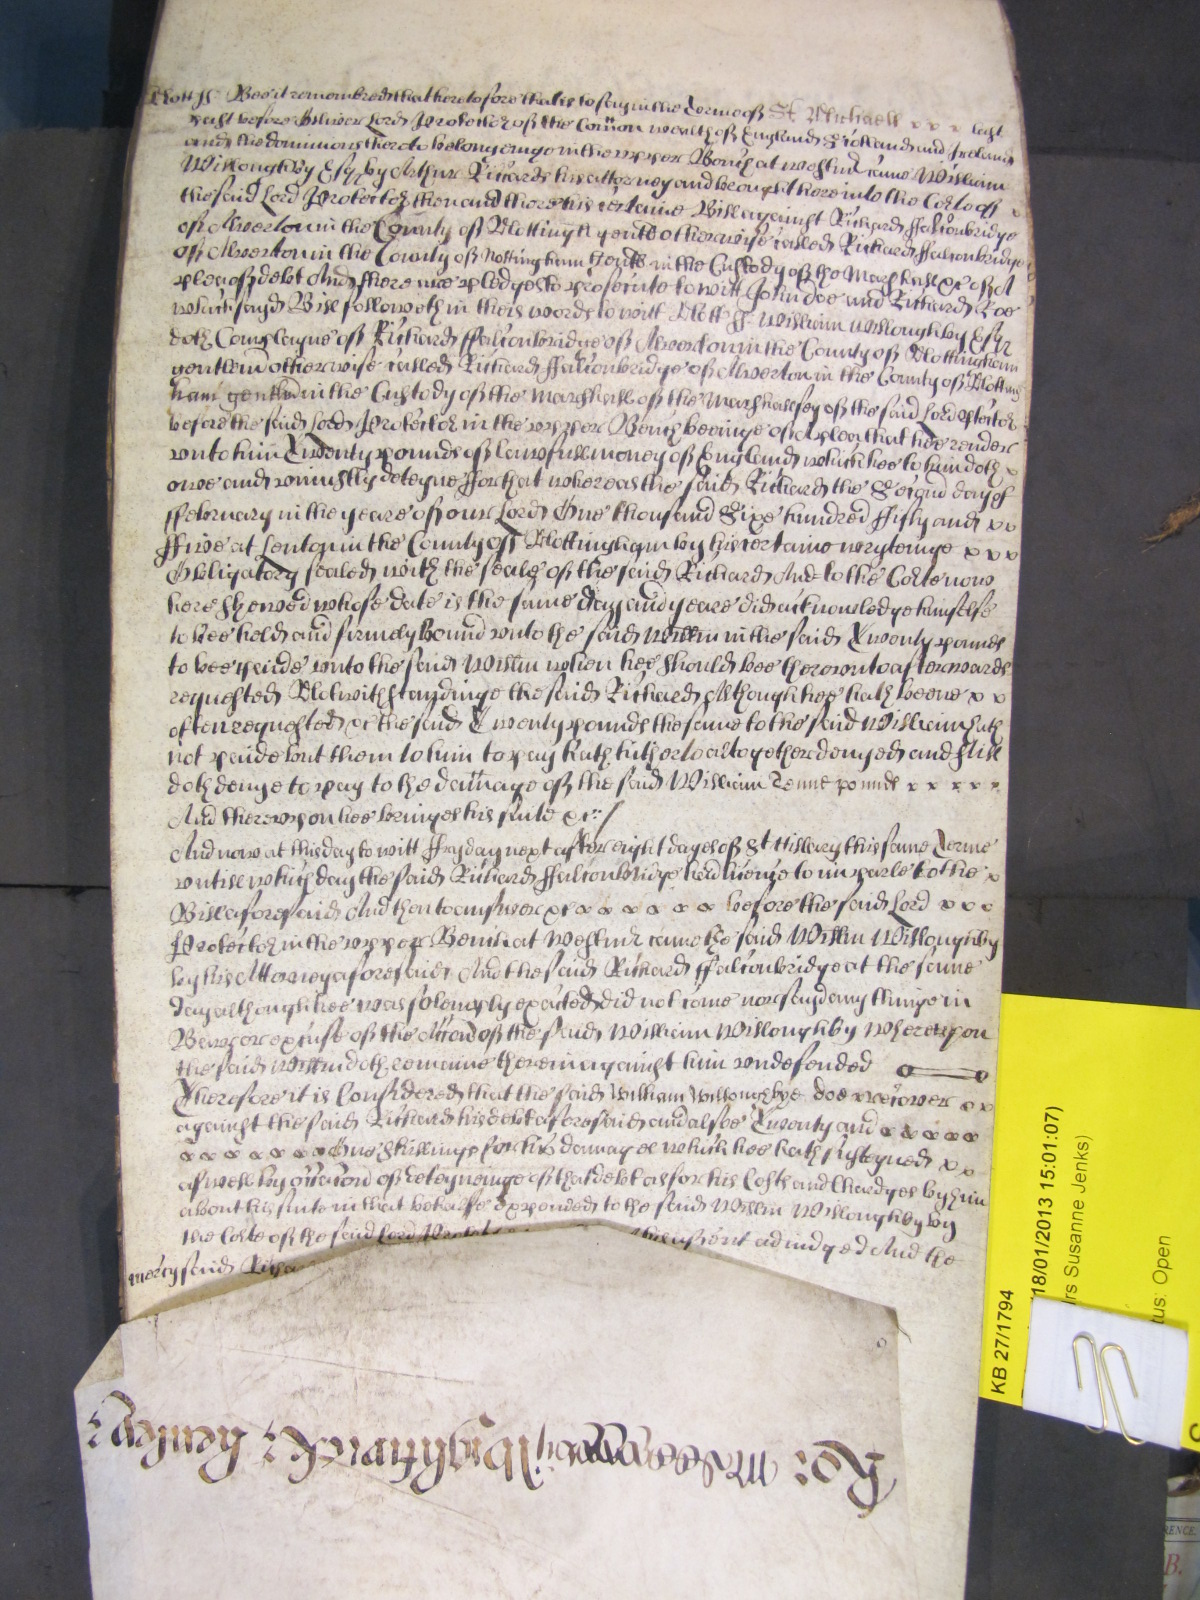 Nott ss Bee it remembred that heretofore that is to say in the Terme of St Michaell x x x last
past before Oliver Lord Protector of the Com̄on wealth of England Scotland and Ireland
and the dominions thereto belonginge in the upper Bench at Westmr came William
Willoughby Esqr by Arthur Rickards his attorney and brought here into the Corte of x
the said Lord Protector then and there his certaine Bill against Richard ffalconbridge
of Alverton in the County of Notting gent otherwise called Richard ffalconbridge
of Alverton in the County of Nottingham Gent in the Custody of the Marshall &c of A
plea of debt And there are pledges to prosecute to witt John doe and Richard Roe
which sayd Bill followeth in theis words to witt Nott ss William Willoughby Esqr
doth Complayne of Richard ffalconbridge of Alverton in the County of Nottingham
gentlem otherwise called Richard ffalconbridge of Alverton in the County of Notting
ham gent in the Custody of the Marshall of the Marshalsey of the said Lord Protector
before the said Lord Protector in the upper Bench beeinge of A plea that hee render
unto him Twenty pounds of lawfull money of England which hee to him doth x
owe and uniustly deteyne ffor that whereas the said Richard the Second day of
ffebruary in the yeare of our Lord One thousand Sixe hundred ffifty and x x
ffive at Lenton in the County of Nottingham by his certaine wryteinge x x x
Obligatory sealed with the seale of the said Richard And to the Corte now
here shewed whose date is the same day and yeare did acknowledge himselfe
to bee held and firmely bound unto the said Willm in the said Twenty pounds
to bee paide unto the said Willm when hee should bee thereunto afterwards
requested Notwithstandinge the said Richard Although hee hath beene x x
often requested &c the said Twenty pounds the same to the said William hath
not paide but them to him to pay hath hitherto altogether denyed and still
doth denye to pay to the damage of the said William Tenne pounds x x x x x
And thereupon hee bringes his suite &c
And now at this day to witt ffryday next after eight dayes of St Hillary this same Terme
untill which day the said Richard ffalconbridge had licence to imparle to the x
Bill aforesaid And then to answer &c x x x x x x before the said Lord x x x
Protector in the upper Bench at Westmr came the said Willm Willoughby
by his Attorney aforesaid And the said Richard ffalconbridge at the same
day although hee was solemply exacted did not come nor sayd any thinge in
Barr or excuse of the Accōn of the said William Willoughby Whereupon
the said Willm doth remaine therein against him undefended
Therefore it is Considered that the said William Willoughbye doe recover x x
against the said Richard his debt aforesaid and alsoe Twenty and x x x x x
x x x x x x One shillinge for his damages which hee hath susteyned x x
aswell by occacōn of deteyneinge of that debt as for his Costs and Chardges by him
about his suite in that behalfe expended to the said Willm Willoughby by
the Corte of the said Lord Protector assent adiudged And the
mercy said Richard
Ro:
henley:
KB 27/1794
18/01/2013 15:01:07)
rs Susanne Jenks)
tus: Open
RENCE
B.